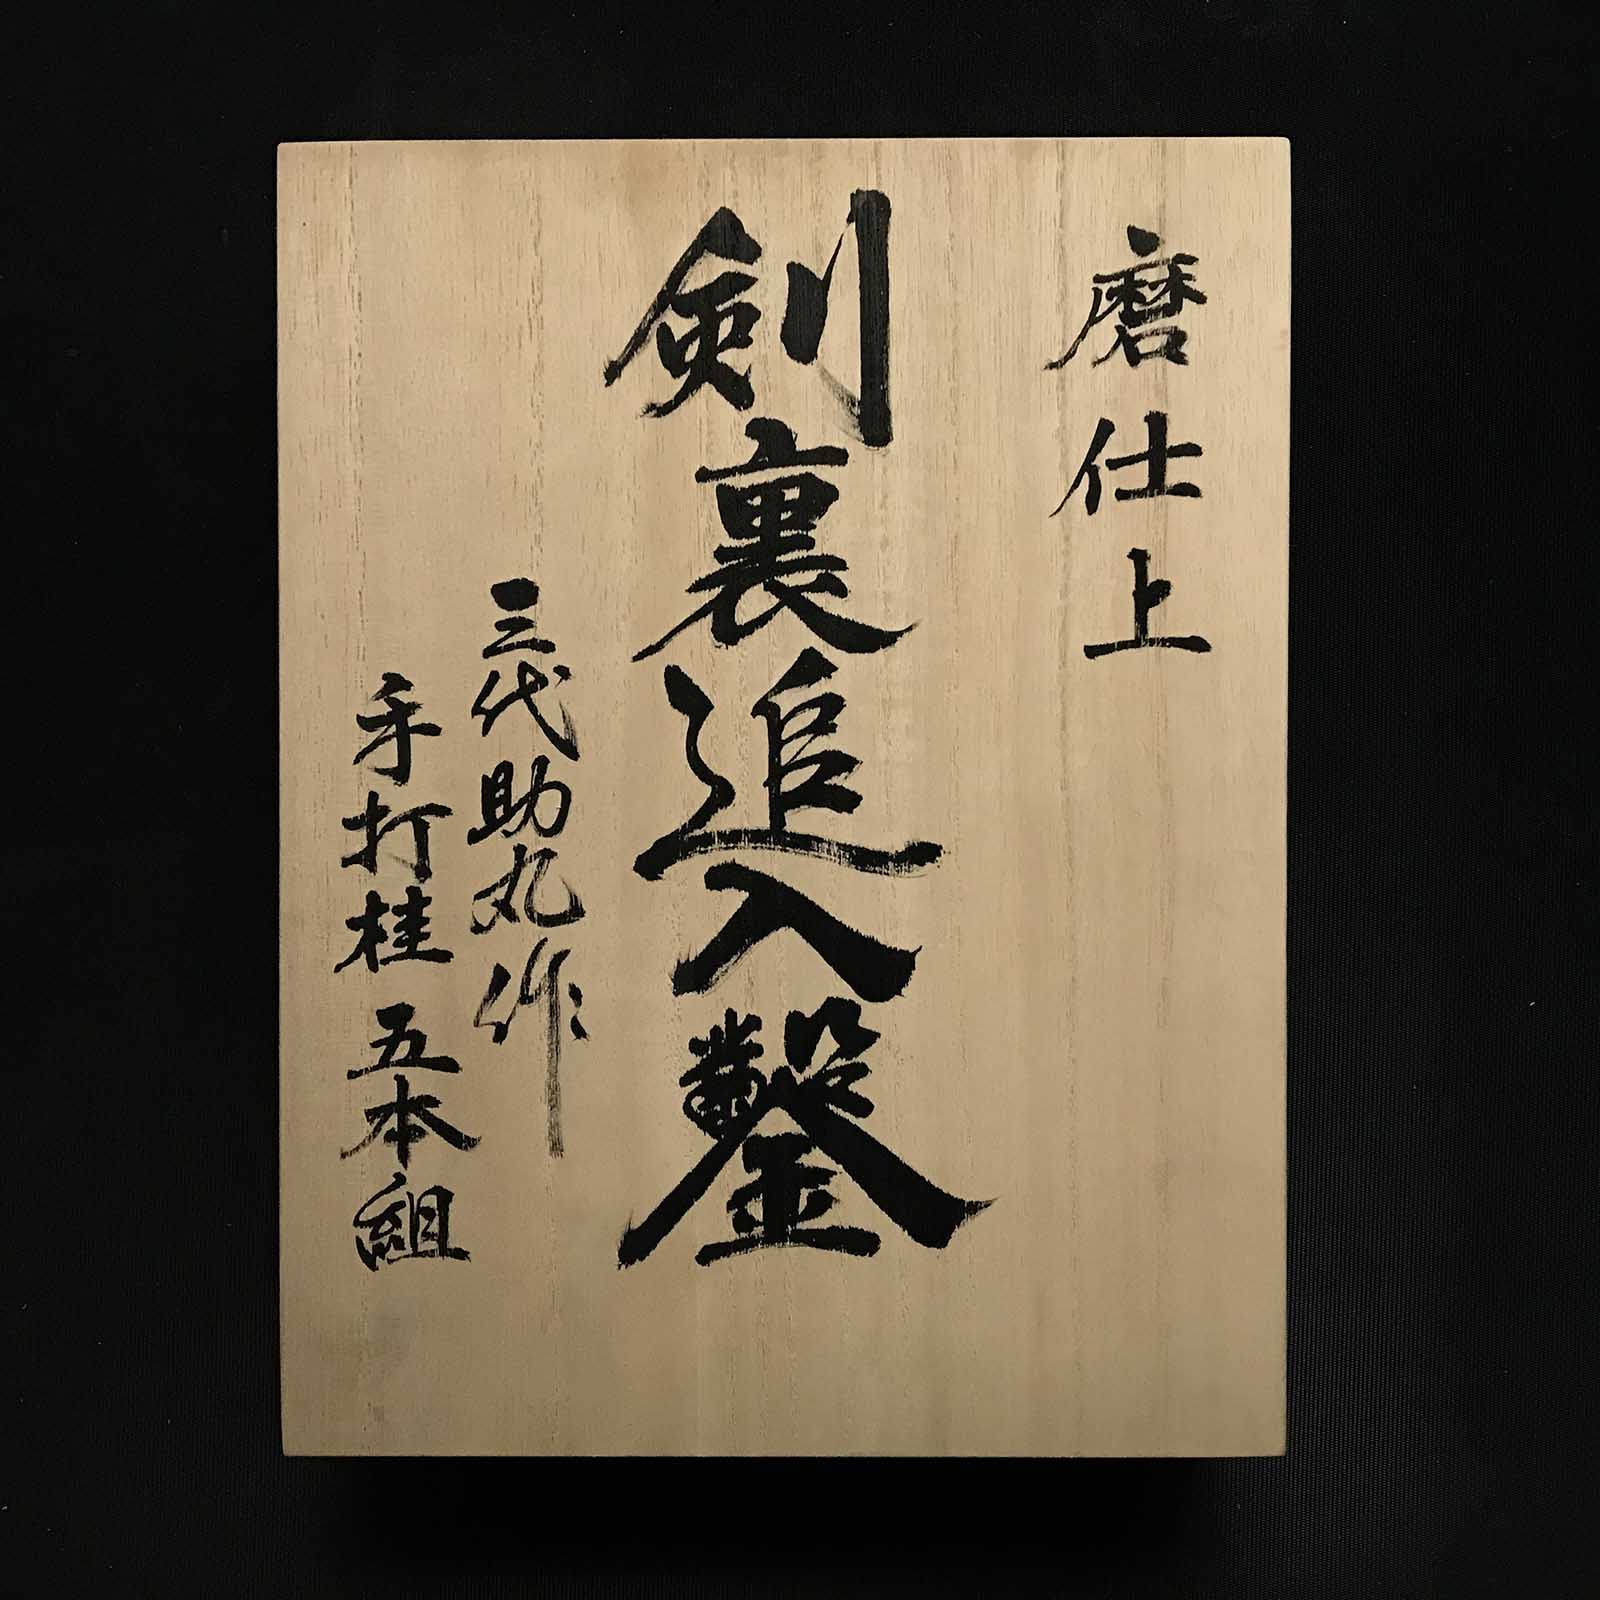 磨仕上
剣裏追入鑿
三代助丸作
手打桂 五本組